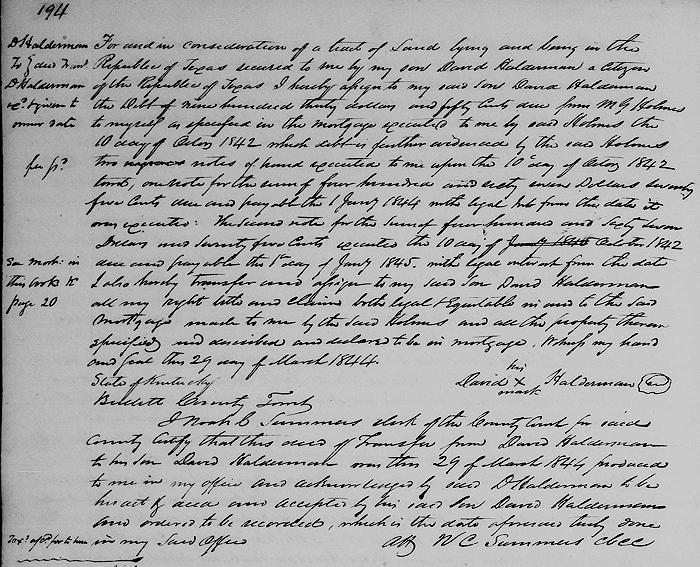 194
D Halderman
To } deed Tran
D Halderman
owner date
See Mortg: in
this book K
page 20
For and in consideration of a tract of Land lying and being in the
Republic of Texas secured to me by my son David Halderman a Citizen
of the Republic of Texas I hereby assign to my said son David Halderman
the Debt of nine hundred thirty dollars and fifty Cents due from M G Holmes
to myself as specified in the mortgage executed to me by said Holmes the
10 day of Octor 1842 which debt is further evidenced by the said Holmes
two notes of hand executed to me upon the 10th day of Octor 1842
one note for the sum of four hundred and sixty seven Dollars Seventy
five Cents due and payable the 1 Jany 1844 with legal from the date it
was executed: The Second note for the Sum of four hundred and Sixty Seven
Dollars and Seventy five Cents executed the 10 day of Octobr 1842
due and payable the 1st day of Jany 1845. with legal interest from the date
I also hereby transfer and assign to my said Son David Halderman
all my right title and claim both legal & Equitable in and to the said
mortgage made to me by the said Holmes and all the property therein
specified and described and declared to be in mortgage. Witness my hand
and Seal this 29 day of March 1844.
his
David X Halderman
mark
State of Kentucky
County
I Noah C Summers clerk of the County Court for said
County Certify that this deed of Transfer from David Halderman
to his Son David Halderman was this 29 of March 1844 produced
to me in my office and acknowledged by said D Halderman to be
his act & deed and accepted by his said Son David Halderman
and ordered to be recorded, which is the date aforesaid truly done
in my Said Office
att N C Summers